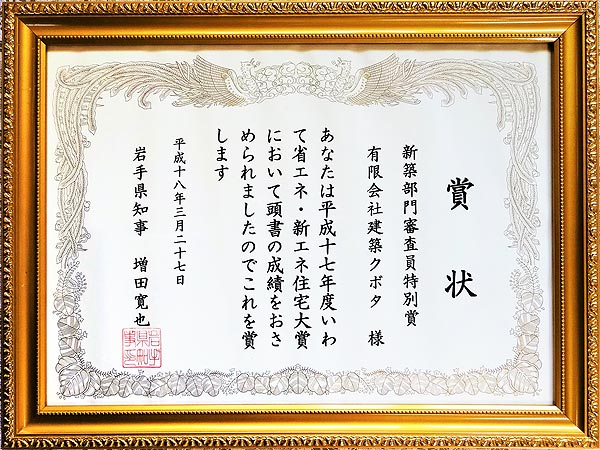 賞状
新築部門審査員特別賞
有限会社建築クボタ 様
あなたは平成十七年度いわ
て省エネ・新エネ住宅大賞
において頭書の成績をおさ
められましたのでこれを賞
します
平成十八年三月二十七日
岩手県知事 増田寛也
岩手
県知
事之印